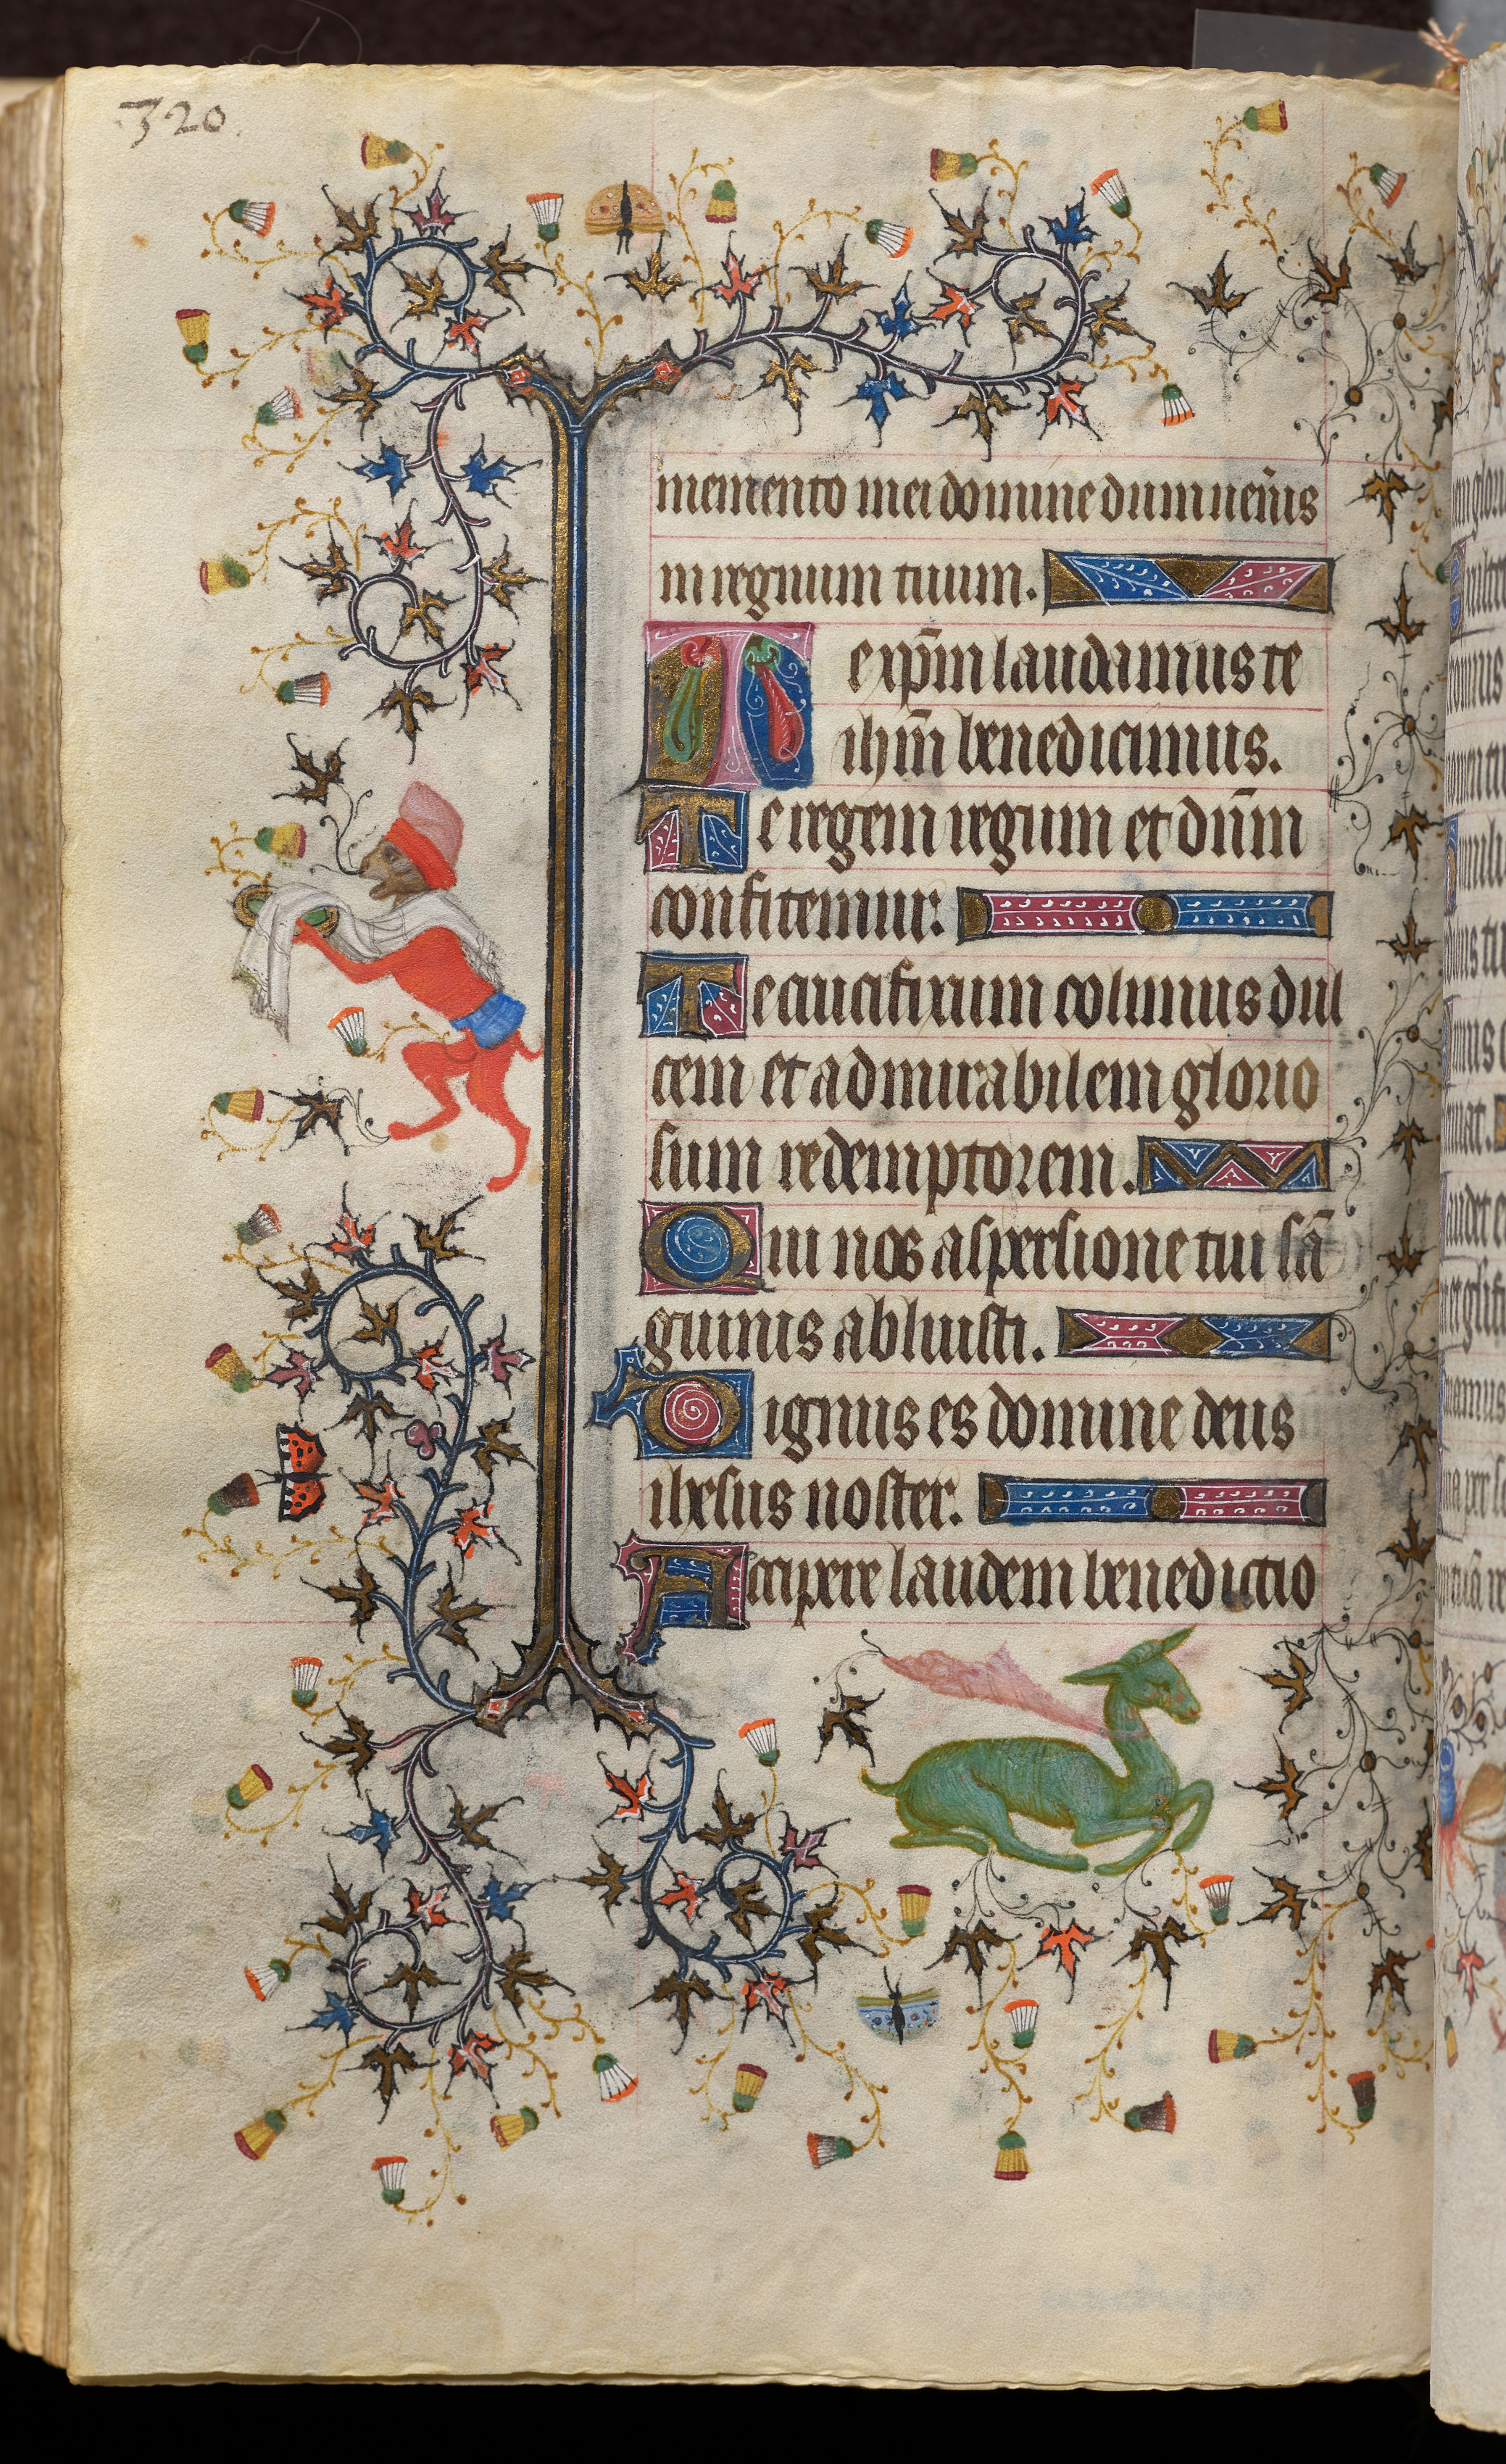 320
memento mei domine dum ueñis
in regnum tuum.
Te xp̄m laudamus te
ihm̄ benedicimus.
Te regem regum et dn̄m
confitemur:
Te crucifixum colimus dul
cem et admirabilem glorio
sum redemptorem.
Qui nos aspersione tui sā
guinis abluisti.
Dignus es domine deus
ihesus noster.
Accipere laudem benedictio